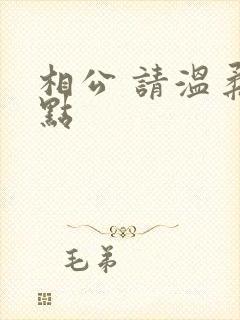 相公 請溫柔
點
毛弟